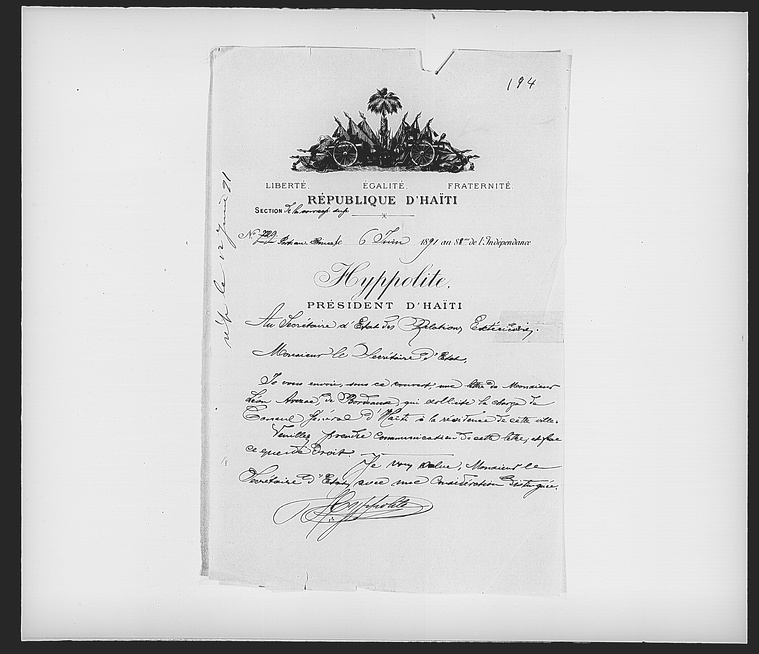 194
LIBERTÉ. ÉGALITÉ. FRATERNITÉ.
RÉPUBLIQUE D'HAÏTI
SECTION de la corresp
N° Port-au-Prince, le 6 Juin 1891 an 88me de l'Indépendance
Hyppolite,
PRÉSIDENT D'HAÏTI
Au Secrétaire d'Etat des Relations Extérieures.
Monsieur le Secrétaire d'Etat,
Je vous envoie, sous ce couvert, une lettre de Monsieur
Léon de Bordeaux, qui sollicite la charge de
Consul Général d'Haïti à la résidence de cette ville.
Veuillez prendre communication de cette lettre, et faire
ce que de droit
Je vous salue, Monsieur le
Secrétaire d'Etat, avec une considération distinguée.
Hyppolite
rép. le 12 Juin 91